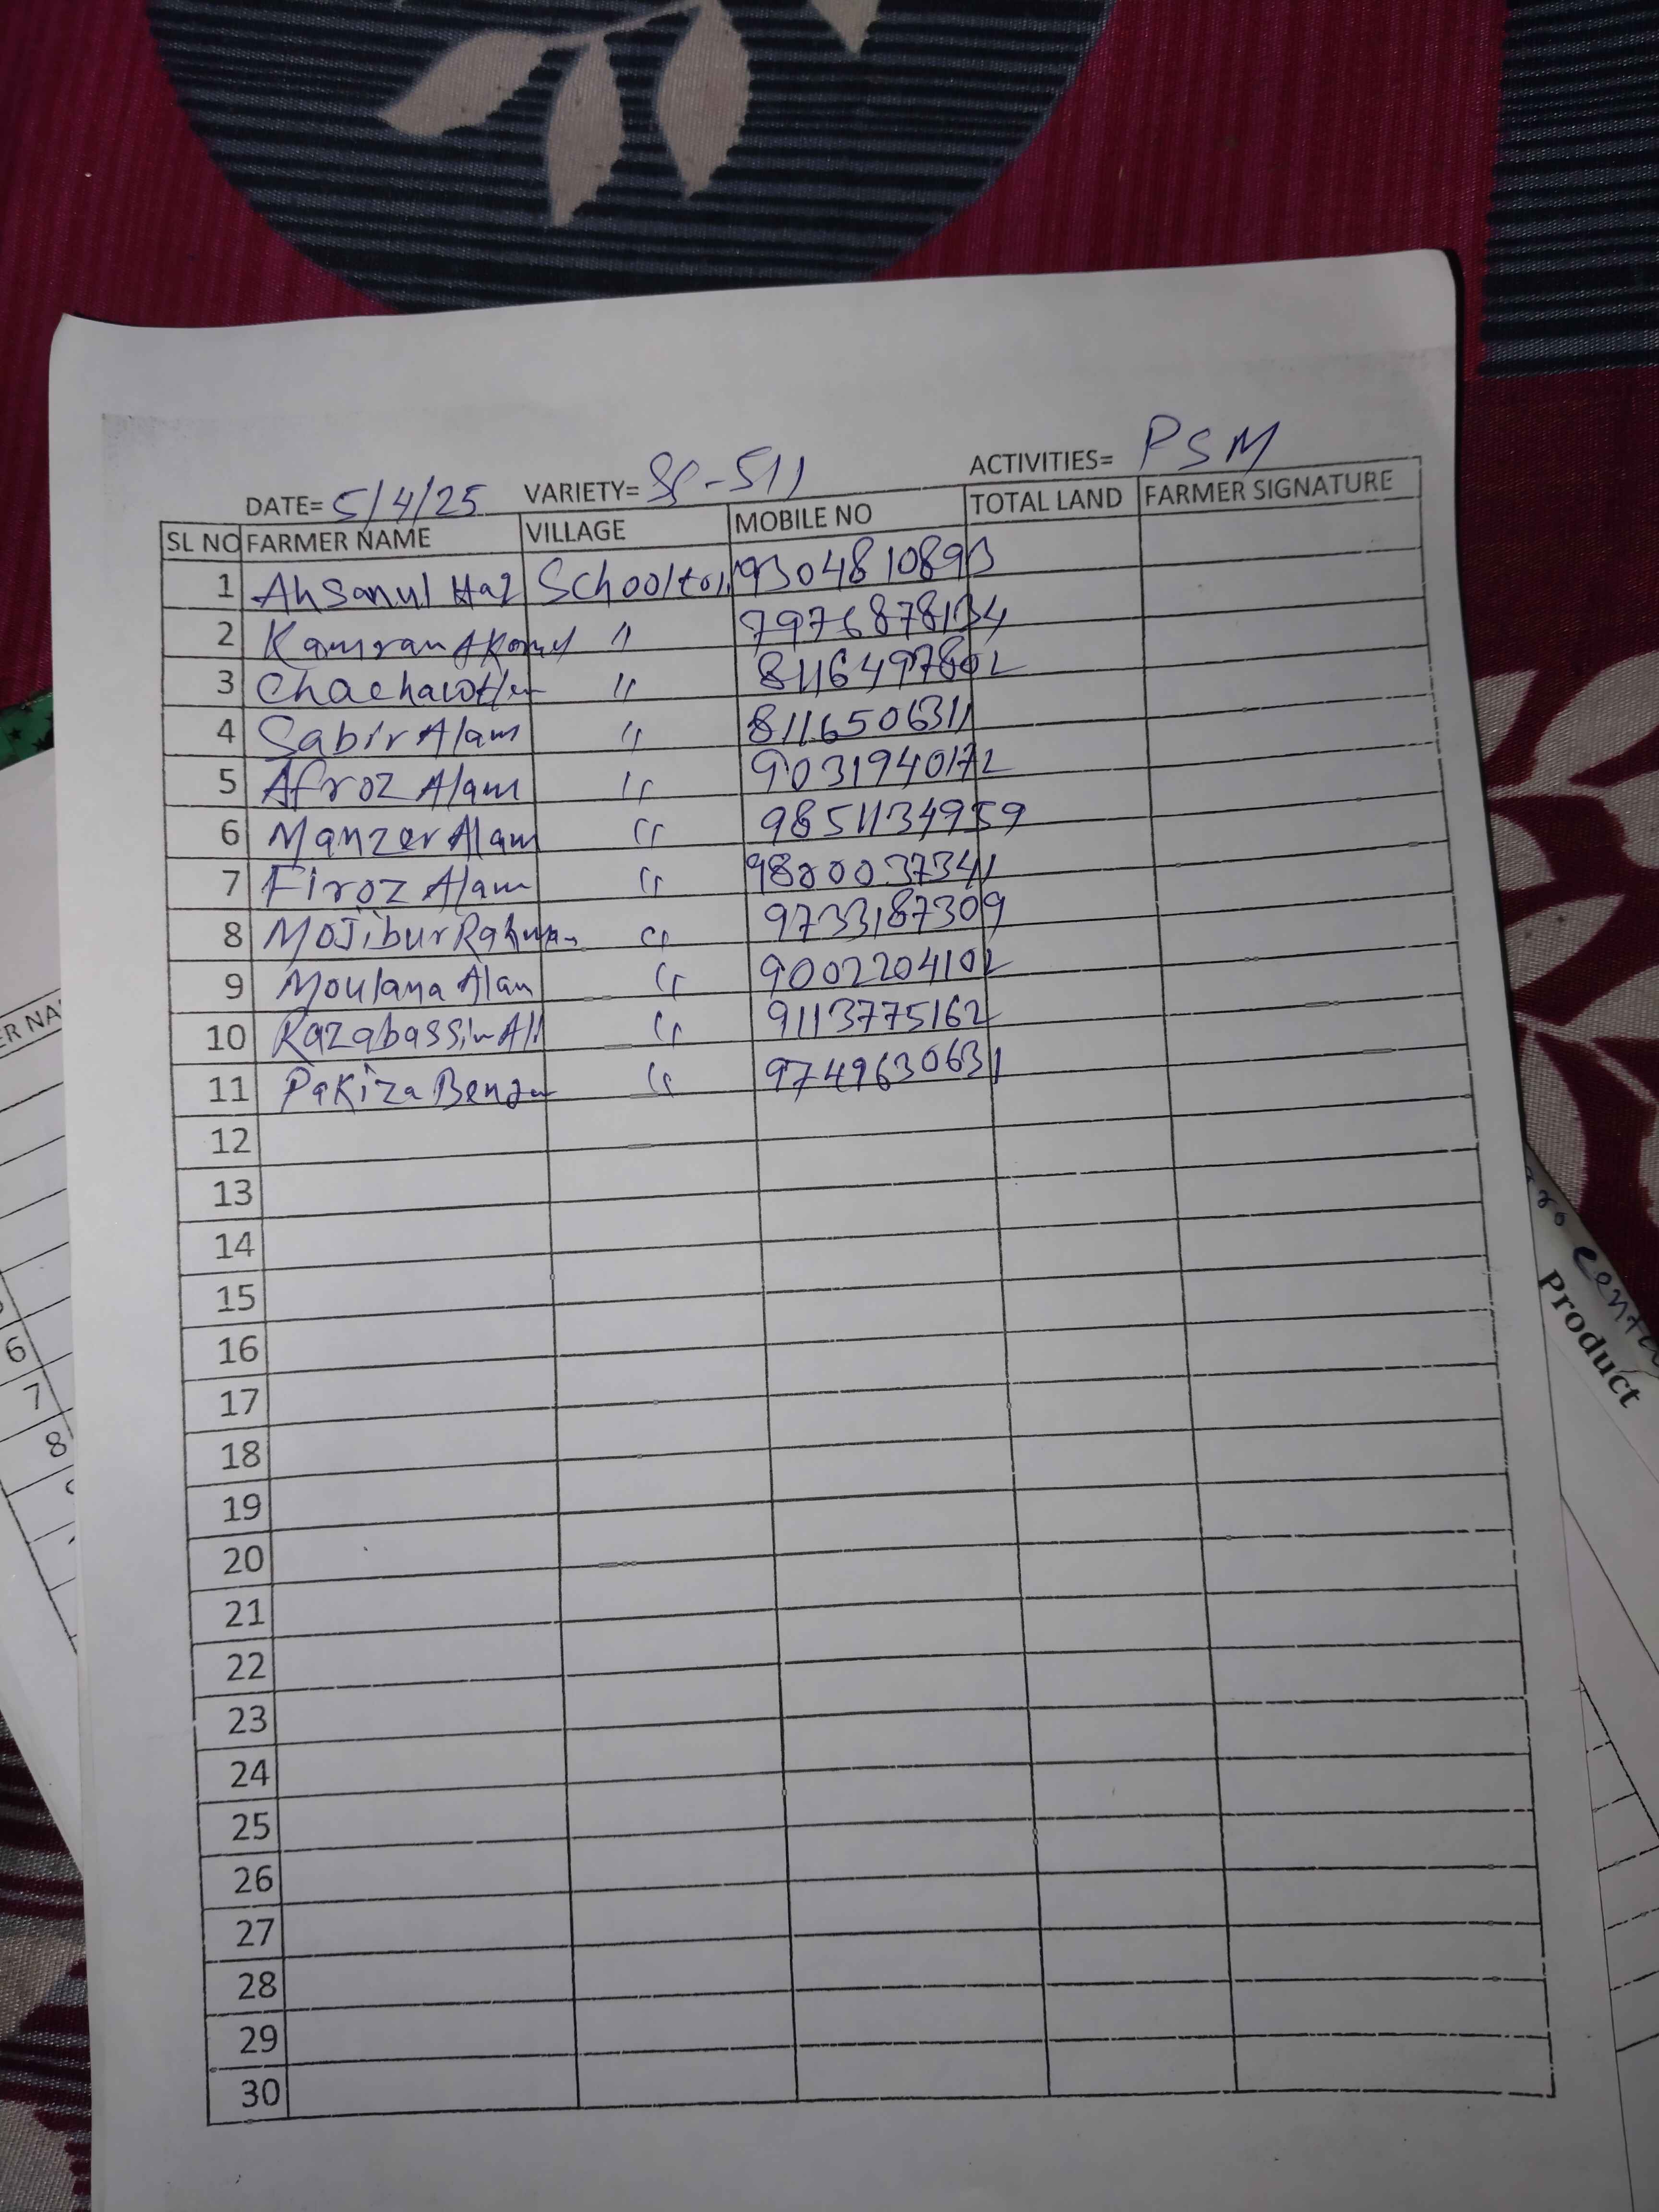 DATE= 5/4/25 VARIETY= SP-511 ACTIVITIES= PSM
SL NO FARMER NAME VILLAGE MOBILE NO TOTAL LAND FARMER SIGNATURE
1 Ahsanul Haq Schooltoli 9304810893
2 Kamran " 7976878134
3 " 8116497802
4 Sabir Alam " 8116506311
5 Afroz Alam " 9031940172
6 Manzer Alam " 9851134959
7 Firoz Alam " 9800037341
8 Mojibur Rahman " 9733187309
9 Moulana Alam " 9002204102
10 Razabassin Ali " 9113775162
11 Pakiza " 9749630631
12
13
14
15
16
17
18
19
20
21
22
23
24
25
26
27
28
29
30
ER NA
6
7
8
Product